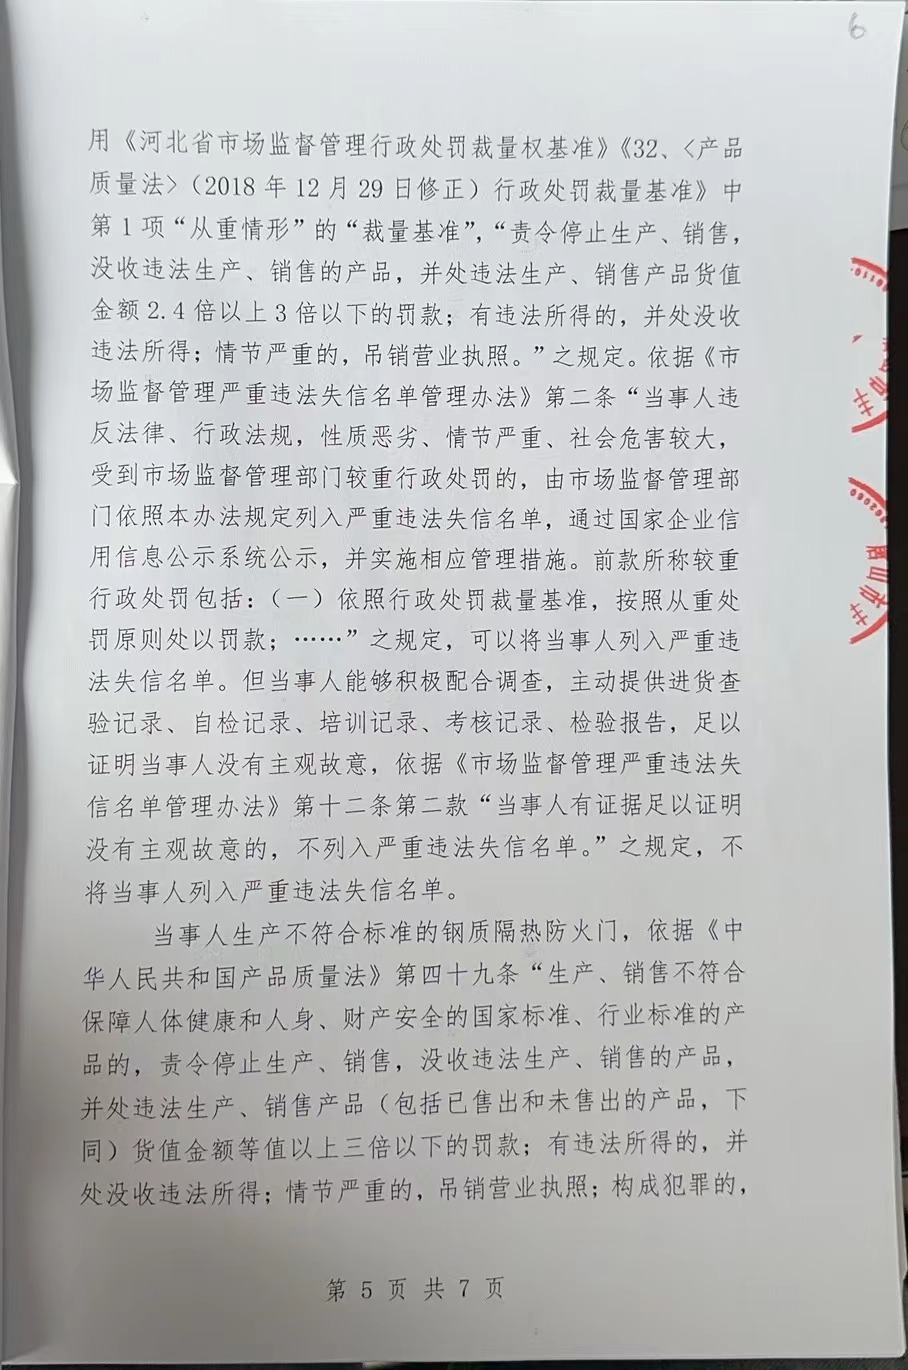 6
用《河北省市场监督管理行政处罚裁量权基准》《32、<产品
质量法>（2018 年 12 月 29 日修正）行政处罚裁量基准》中
第 1 项“从重情形”的“裁量基准”，“责令停止生产、销售，
没收违法生产、销售的产品，并处违法生产、销售产品货值
金额 2.4 倍以上 3 倍以下的罚款；有违法所得的，并处没收
违法所得；情节严重的，吊销营业执照。”之规定。依据《市
场监督管理严重违法失信名单管理办法》第二条“当事人违
反法律、行政法规，性质恶劣、情节严重、社会危害较大，
受到市场监督管理部门较重行政处罚的，由市场监督管理部
门依照本办法规定列入严重违法失信名单，通过国家企业信
用信息公示系统公示，并实施相应管理措施。前款所称较重
行政处罚包括：（一）依照行政处罚裁量基准，按照从重处
罚原则处以罚款；……”之规定，可以将当事人列入严重违
法失信名单。但当事人能够积极配合调查，主动提供进货查
验记录、自检记录、培训记录、考核记录、检验报告，足以
证明当事人没有主观故意，依据《市场监督管理严重违法失
信名单管理办法》第十二条第二款“当事人有证据足以证明
没有主观故意的，不列入严重违法失信名单。”之规定，不
将当事人列入严重违法失信名单。
当事人生产不符合标准的钢质隔热防火门，依据《中
华人民共和国产品质量法》第四十九条“生产、销售不符合
保障人体健康和人身、财产安全的国家标准、行业标准的产
品的，责令停止生产、销售，没收违法生产、销售的产品，
并处违法生产、销售产品（包括已售出和未售出的产品，下
同）货值金额等值以上三倍以下的罚款；有违法所得的，并
处没收违法所得；情节严重的，吊销营业执照；构成犯罪的，
第 5 页 共 7 页